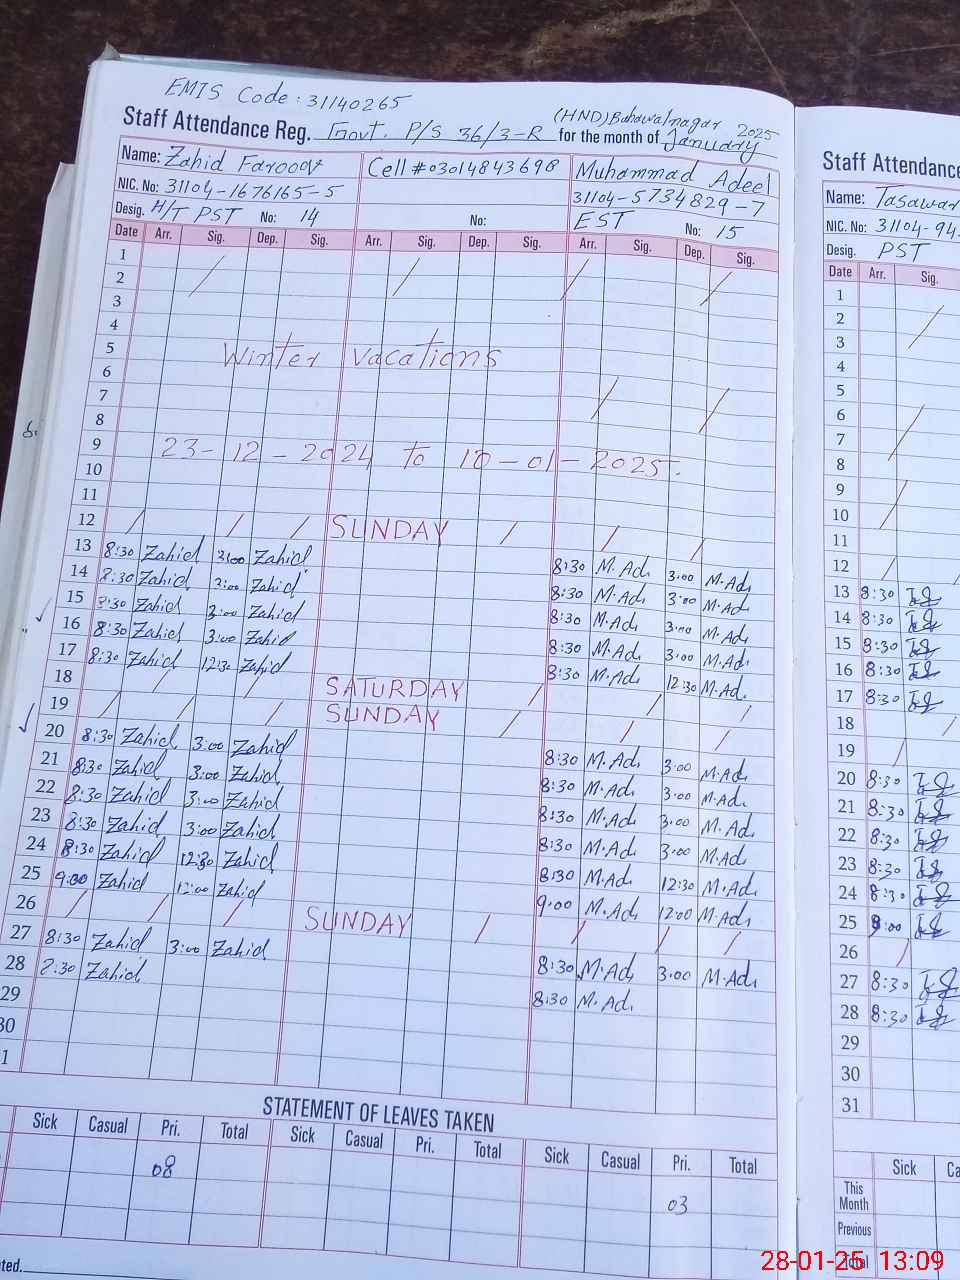 EMIS Code: 31140265
(HND) Bahawalnagar
Staff Attendance Reg. Govt. P/S 36/3-R for the month of January 2025
Name: Zahid Farooq Cell # 03014843698 Muhammad Adeel
NIC. No: 31104-1676165-5 31104-5734829-7
Desig. H/T PST No: 14 No: EST No: 15
Date Arr. Sig. Dep. Sig. Arr. Sig. Dep. Sig. Arr. Sig. Dep. Sig.
1
2
3
4
5 Winter vacations
6
7
8
9 23-12-2024 to 10-01-2025.
10
11
12 SUNDAY
13 8:30 Zahid 3:00 Zahid 8:30 M.Ad 3:00 M.Ad
14 8:30 Zahid 3:00 Zahid 8:30 M.Ad 3:00 M.Ad
15 8:30 Zahid 3:00 Zahid 8:30 M.Ad 3:00 M.Ad
16 8:30 Zahid 3:00 Zahid 8:30 M.Ad 3:00 M.Ad
17 8:30 Zahid 12:30 Zahid 8:30 M.Ad 12:30 M.Ad
18 SATURDAY
19 SUNDAY
20 8:30 Zahid 3:00 Zahid 8:30 M.Ad 3:00 M.Ad
21 8:30 Zahid 3:00 Zahid 8:30 M.Ad 3:00 M.Ad
22 8:30 Zahid 3:00 Zahid 8:30 M.Ad 3:00 M.Ad
23 8:30 Zahid 3:00 Zahid 8:30 M.Ad 3:00 M.Ad
24 8:30 Zahid 12:30 Zahid 8:30 M.Ad 12:30 M.Ad
25 9:00 Zahid 12:00 Zahid 9:00 M.Ad 12:00 M.Ad
26 SUNDAY
27 8:30 Zahid 3:00 Zahid 8:30 M.Ad 3:00 M.Ad
28 8:30 Zahid 8:30 M.Ad
29
30
1
STATEMENT OF LEAVES TAKEN
Sick Casual Pri. Total Sick Casual Pri. Total Sick Casual Pri. Total
08 03
ted.
Staff Attendance
Name: Tasawar
NIC. No: 31104-94
Desig. PST
Date Arr. Sig.
1
2
3
4
5
6
7
8
9
10
11
12
13 8:30
14 8:30
15 8:30
16 8:30
17 8:30
18
19
20 8:30
21 8:30
22 8:30
23 8:30
24 8:30
25 9:00
26
27 8:30
28 8:30
29
30
31
Sick Ca
This Month
Previous
Total
28-01-25 13:09